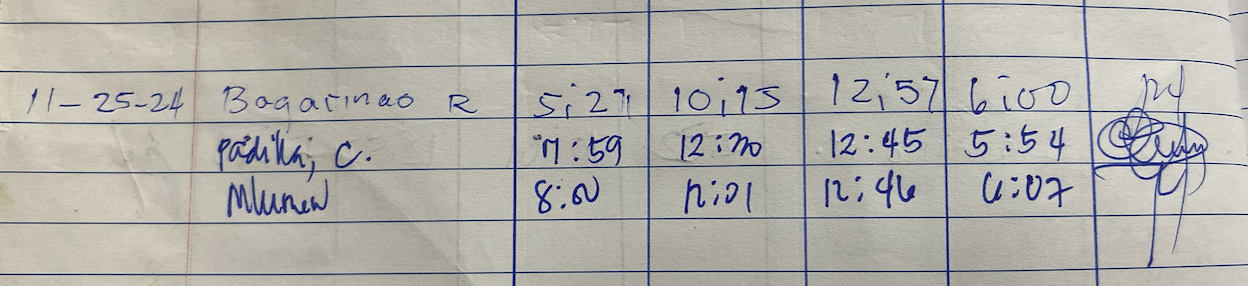 11-25-24 Bagarinao R 5:27 10:15 12:57 6:00
Padilla, C. 7:59 12:30 12:45 5:54
8:00 12:01 12:46 6:07